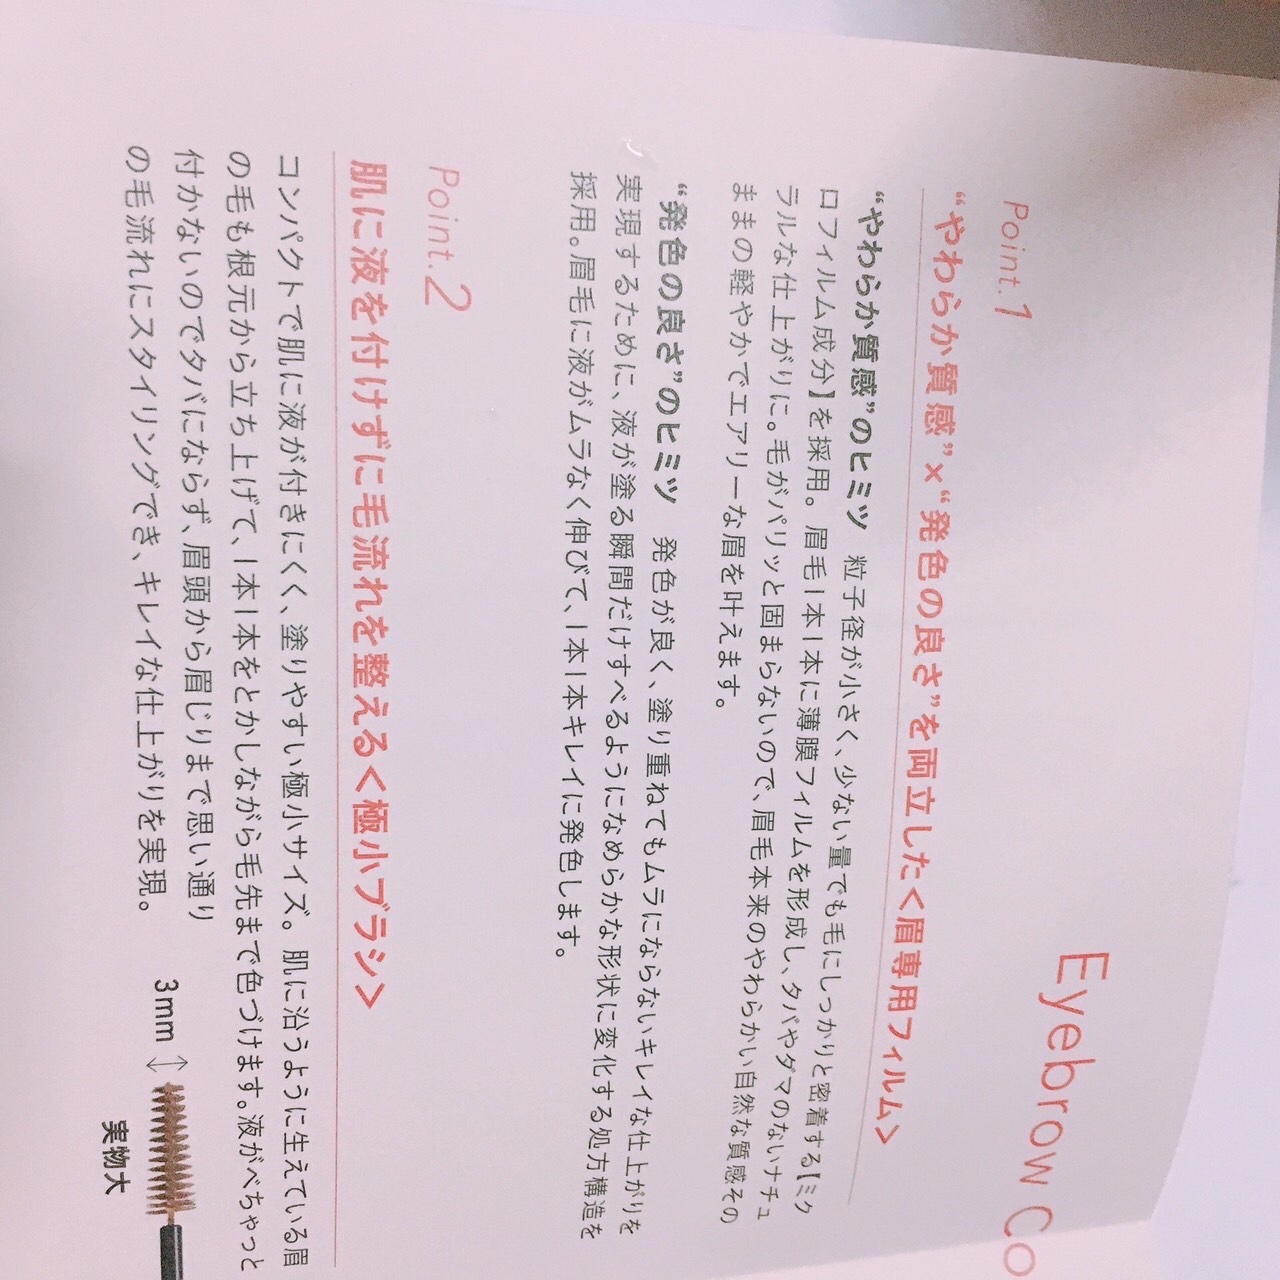 Eyebrow Co
Point.1
“やわらか質感”×“発色の良さ”を両立した<眉専用フィルム>
“やわらか質感”のヒミツ 粒子径が小さく、少ない量でも毛にしっかりと密着する【ミク
ロフィルム成分】を採用。眉毛1本1本に薄膜フィルムを形成し、タバやダマのないナチュ
ラルな仕上がりに。毛がパリッと固まらないので、眉毛本来のやわらかい自然な質感その
ままの軽やかでエアリーな眉を叶えます。
“発色の良さ”のヒミツ 発色が良く、塗り重ねてもムラにならないキレイな仕上がりを
実現するために、液が塗る瞬間だけすべるようになめらかな形状に変化する処方構造を
採用。眉毛に液がムラなく伸びて、1本1本キレイに発色します。
Point.2
肌に液を付けずに毛流れを整える<極小ブラシ>
コンパクトで肌に液が付きにくく、塗りやすい極小サイズ。肌に沿うように生えている眉
の毛も根元から立ち上げて、1本1本をとかしながら毛先まで色づけます。液がべちゃっと
付かないのでタバにならず、眉頭から眉じりまで思い通り
の毛流れにスタイリングでき、キレイな仕上がりを実現。
3mm
実物大